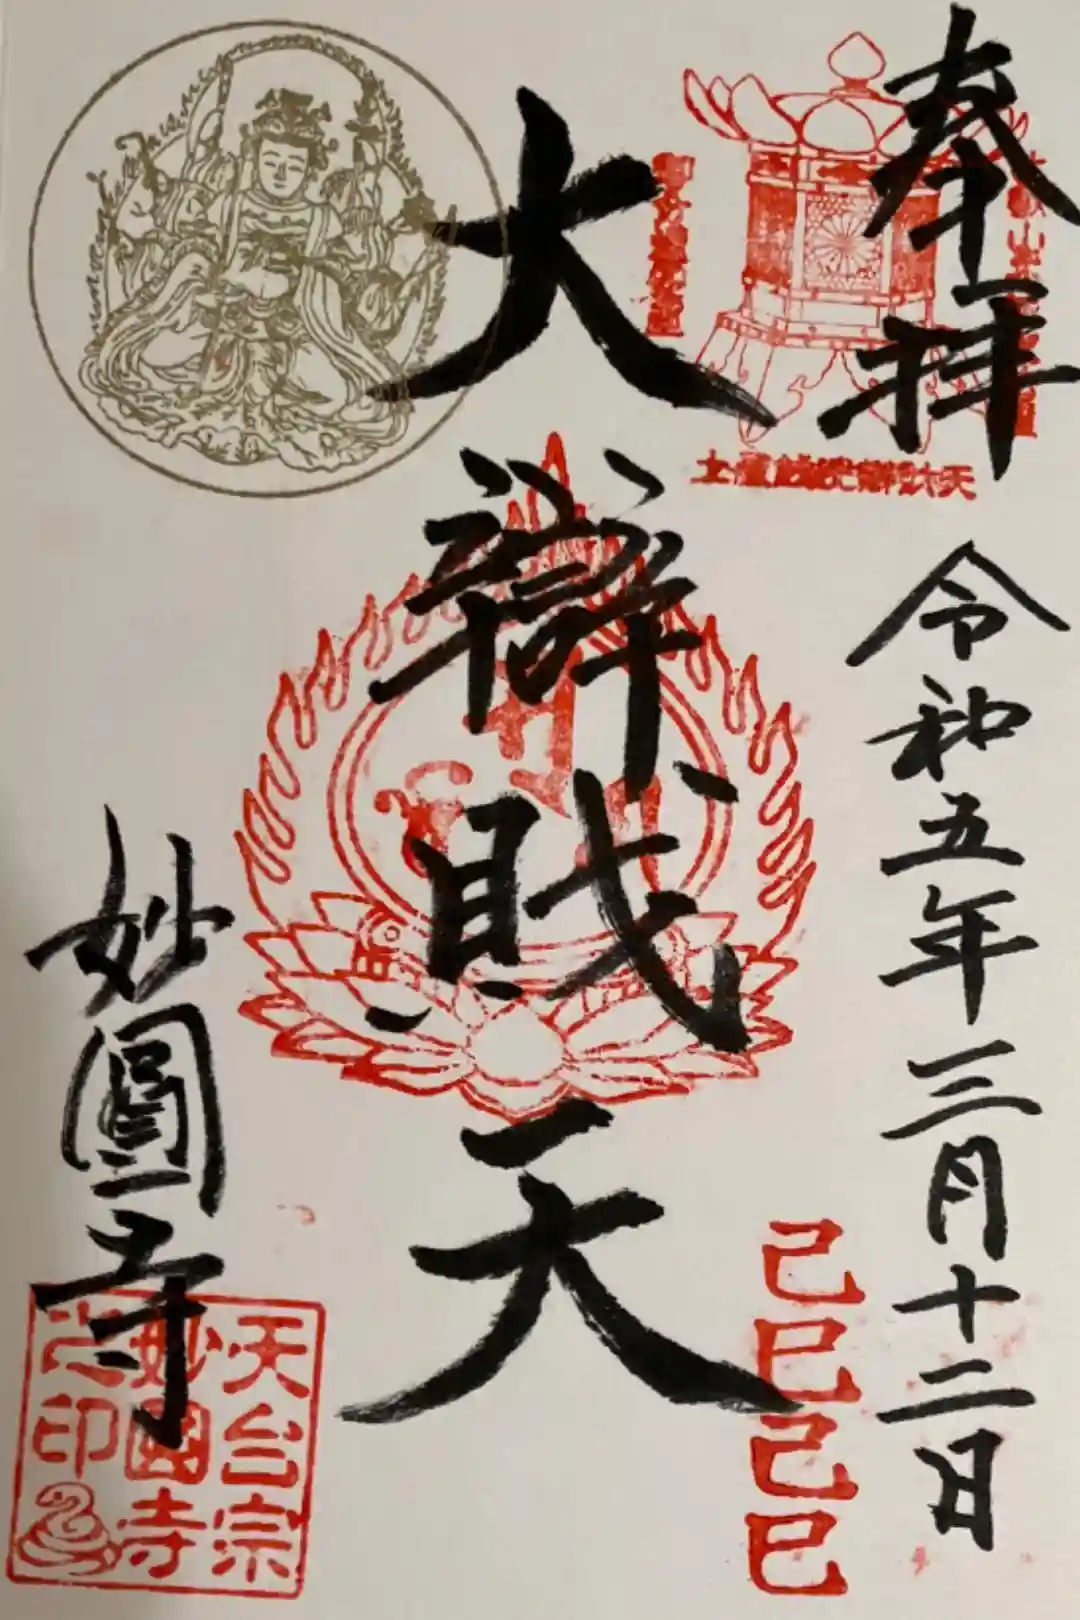 奉拝
令和五年三月十二日
己巳己巳
大辯財天
妙圓寺
天台宗
妙圓寺
之印